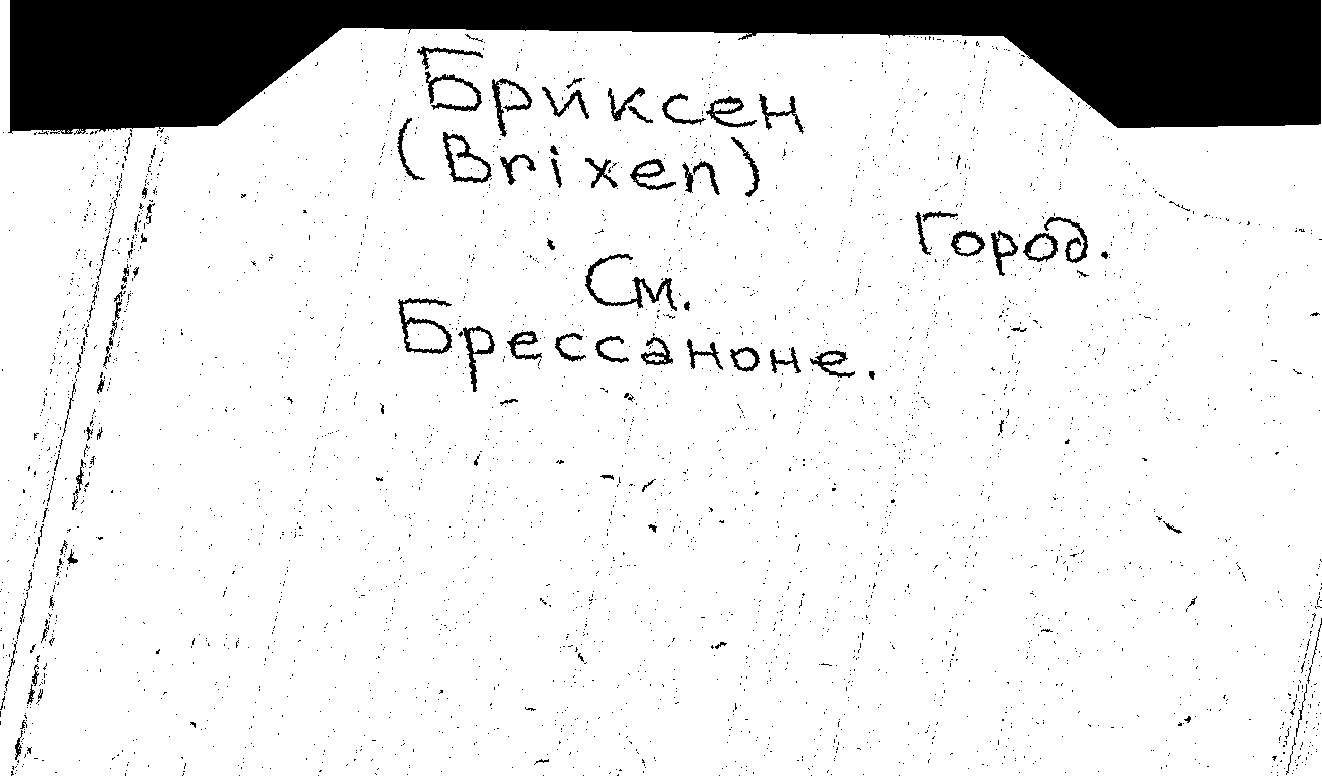 Бриксен
(Brixen)
Город.
См.
Брессаноне.